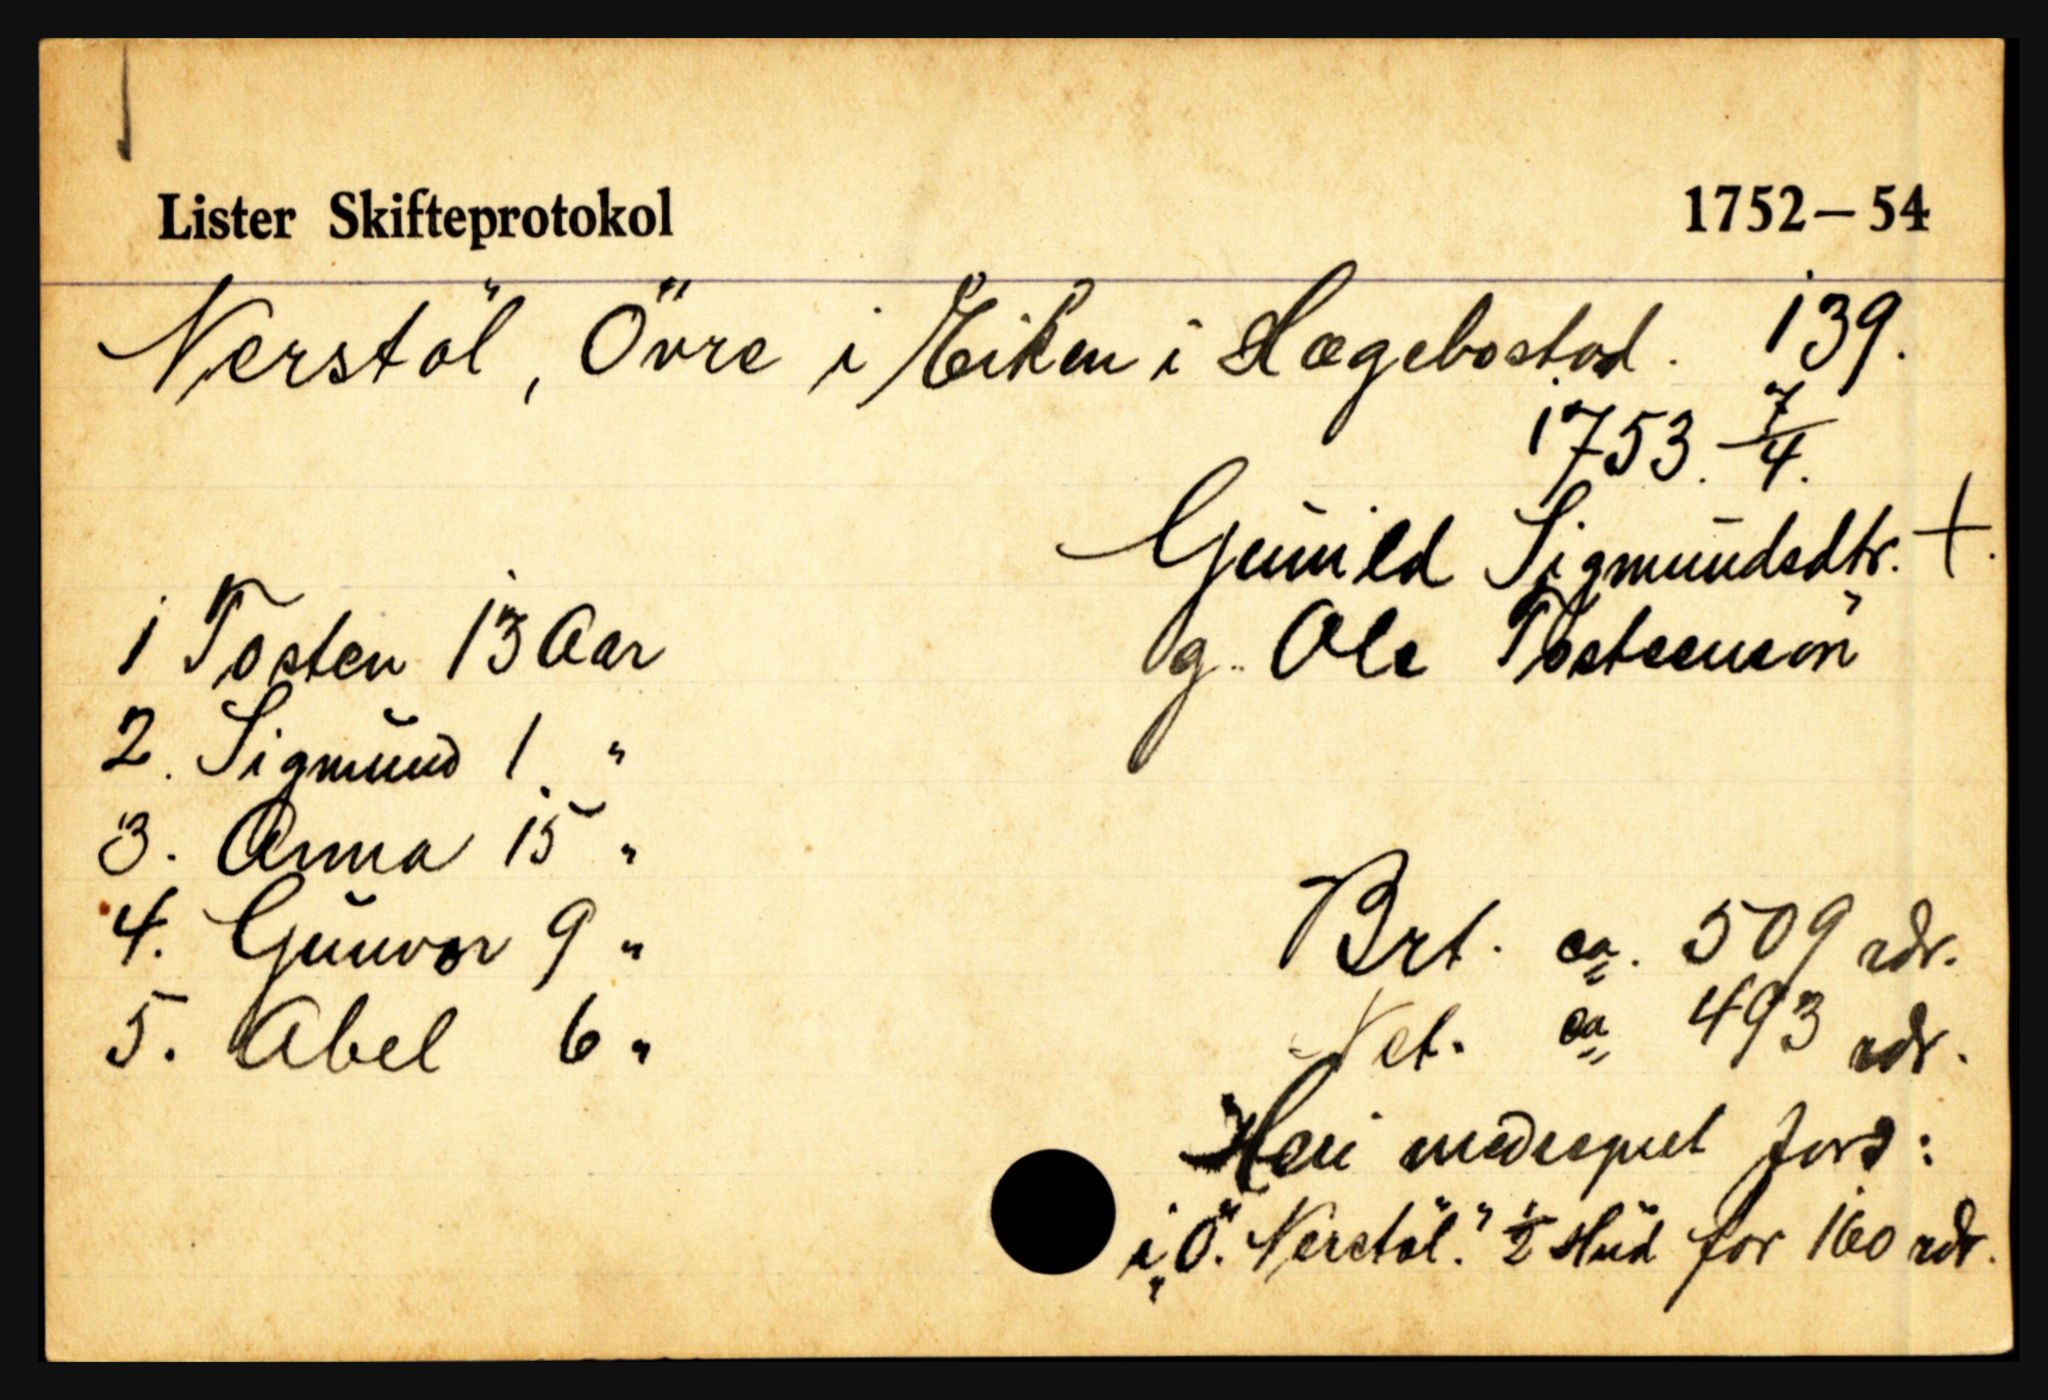 Lister Skifteprotokol 1752–54
Nerstöl, Övre i Eiken i Hægebostad. 139.
1753. 7/4.
Gunild Sigmundsdtr. +.
g. Ole Tosteensön
1 Tosten 13 Aar
2. Sigmund 1 "
3. Anna 15 "
4. Gunvor 9 "
5. Abel 6 "
Brt. ca. 509 rdr.
Net. ca 493 rdr.
Heri medregnet Jord:
i "Ö. Nerstöl." 1/2 Hud for 160 rdr.